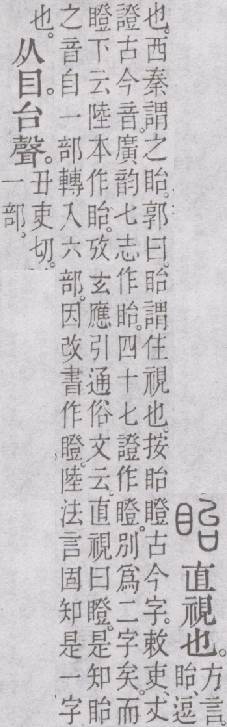 眙 直視也。方言。眙逗
也。西秦謂之眙。郭曰。眙謂住視也。按眙瞪古今字。敕吏、丈
證古今音。廣韵七志作眙。四十七證作瞪。別爲二字矣。而
瞪下云陸本作眙。攷玄應引通俗文云。直視曰瞪。是知眙
之音自一部轉入六部。因改書作瞪。陸法言固知是一字
也。从目台聲。丑吏切。一部。